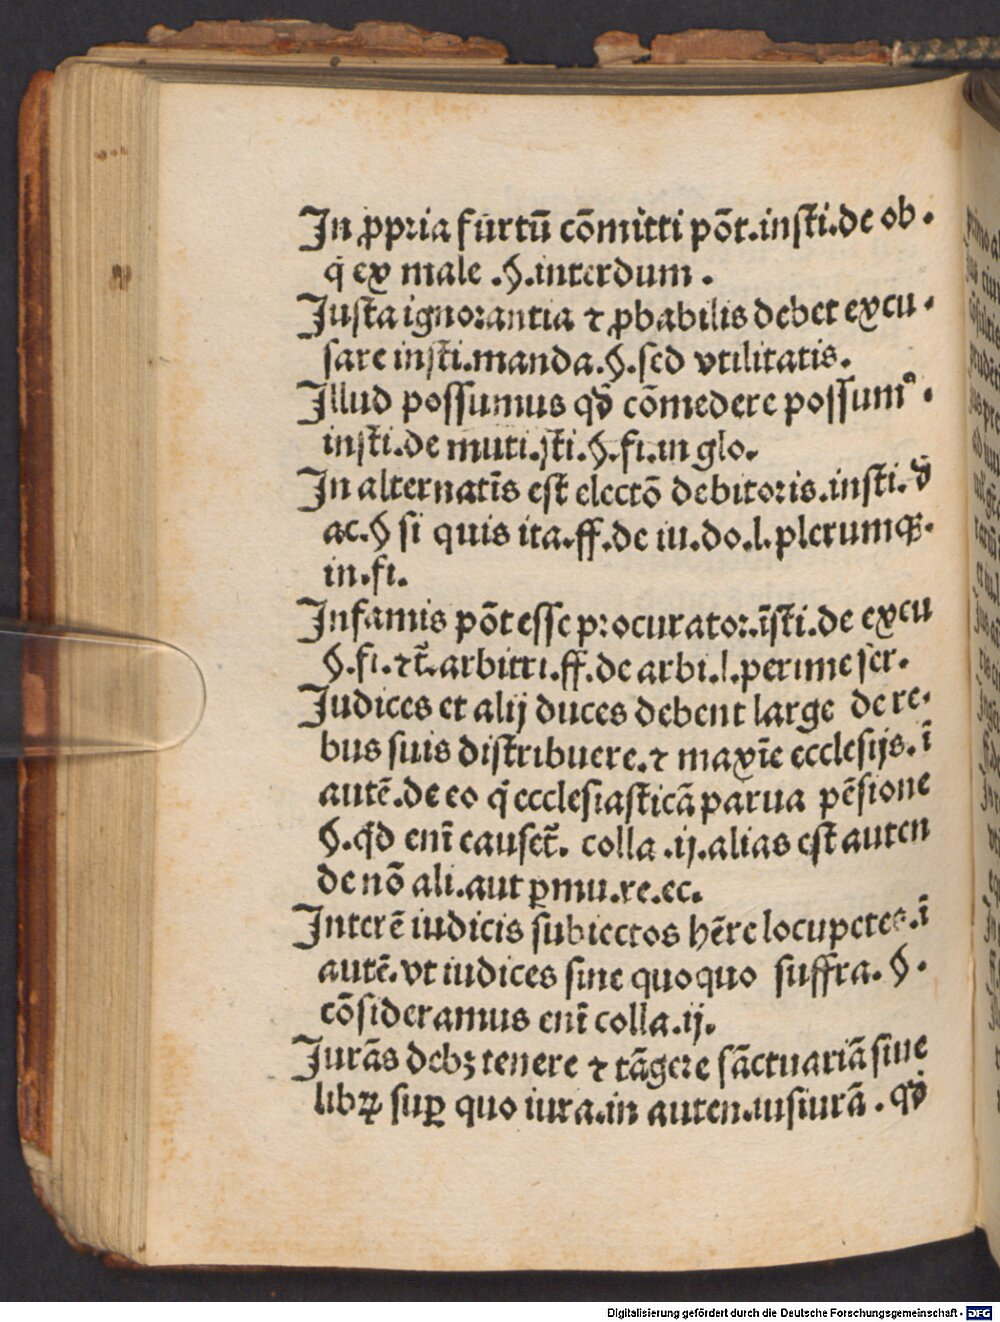 In ꝓpria furtū cōmitti pōt.insti.de ob.
q̄ ex male .§.interdum .
Justa ignorantia ⁊ ꝓbabilis debet excu.
sare insti.manda.§.sed vtilitatis.
Illud possumus qđ cōmedere possumꝰ.
insti.de muti.sti.§.fi.in glo.
In alternatīs est electō debitoris.insti.đ
ac.§ si quis ita.ff.de iu.do.l.plerumqꝫ.
in.fi.
Infamis pōt esse procurator.īsti.de excu
§.fi.⁊t̄.arbitri.ff.de arbi.l.perime ser.
Judices et alij duces debent large de re.
bus suis distribuere.⁊ maxīe ecclesijs.ī
autē.de eo q̄ ecclesiasticā parua pēsione
§.qđ enī eausct̄. colla .ij.alias est auten
de nō ali.aut ꝑmu.re.ec.
Interē iudicis subiectos hēre locupetes.ī
autē.vt iudices sine quoquo suffra.§.
cōsideramus enī colla.ij.
Jurās debꝫ tenere ⁊ tāgere sāctuariā siue
librꝝ suꝑ quo iura.in auten.iusiurā . qđ
Digitalisierung gefördert durch die Deutsche Forschungsgemeinschaft - DFG